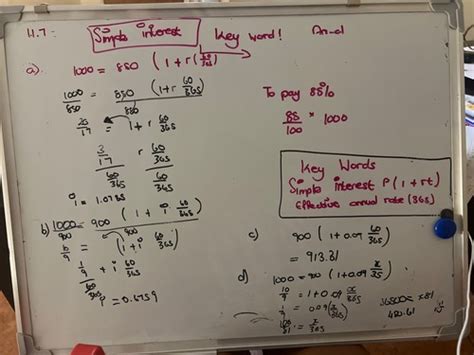 11.7:
Simple interest
Key word!
a)
1000 = 850 (1 + r (60/365)
1000/850 = 850 (1 + r 60/365) / 850
20/17 = 1 + r 60/365
3/17 r 60/365
60/365 60/365
i = 1.0735
To pay 85%
85/100 * 1000
Key Words
Simple interest P(1 + rt)
Effective annual rate (365)
b) 1000/900 = 900 (1 + i 60/365) / 900
10/9 = (1 + i 60/365)
1/9 + i 60/365
60/365
i = 0.6759
c) 900 (1 + 0.09 60/365)
= 913.31
d) 1000 = 900 (1 + 0.09 x/365)
10/9 = 1 + 0.09 x/365
1/9 = 0.09 (x/365)
100/81 = x/365
36500 = 81
450.61